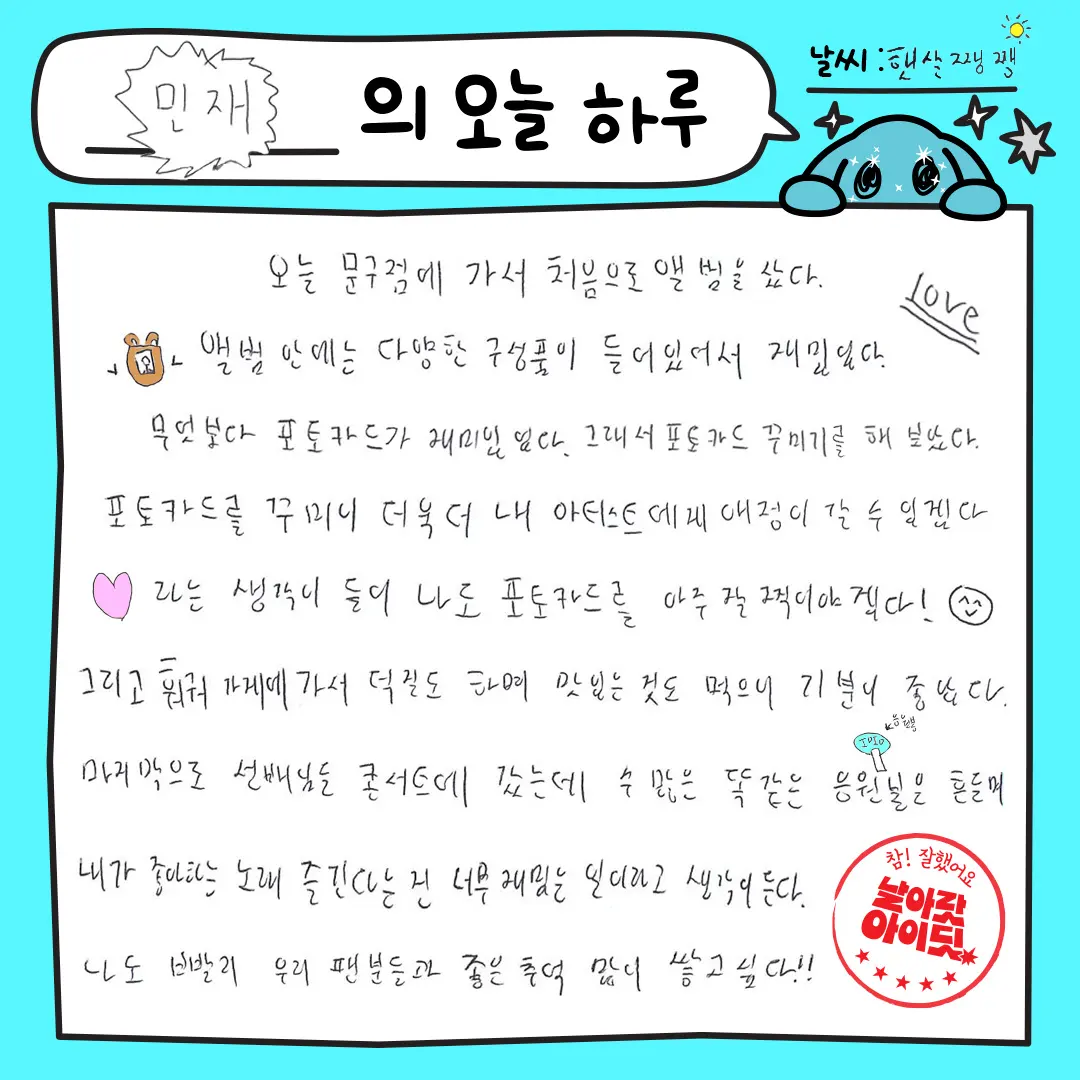 민재 의 오늘 하루
날씨 : 햇살 쨍쨍
오늘 문구점에 가서 처음으로 앨범을 샀다.
love
앨범 안에는 다양한 구성품이 들어있어서 재밌었다.
무엇보다 포토카드가 재미있었다. 그래서 포토카드 꾸미기를 해 보았다.
포토카드를 꾸미니 더욱 더 내 아티스트에게 애정이 갈 수 있겠다
라는 생각이 들어 나도 포토카드를 아주 잘 찍어야겠다!
그리고 훠궈 가게에 가서 덕질도 하며 맛있는 것도 먹으니 기분이 좋았다.
응원봉
마지막으로 선배님들 콘서트에 갔는데 수 많은 똑같은 응원봉을 흔들며
내가 좋아하는 노래 즐긴다는건 너무 재밌는 일이라고 생각이 든다.
나도 빨리 우리 팬분들과 좋은 추억 많이 쌓고 싶다!!
참! 잘했어요
날아랏
아이딧